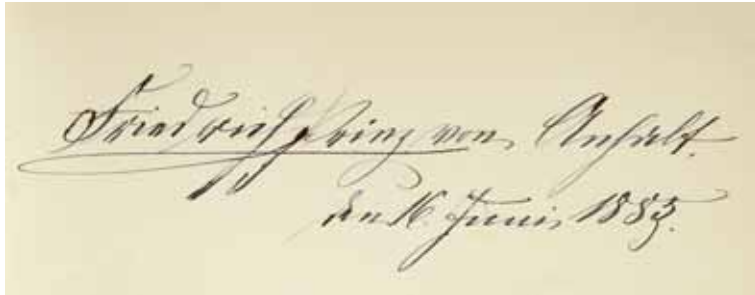 Friedrich Prinz von Anhalt.
den 16. Juni 1883.